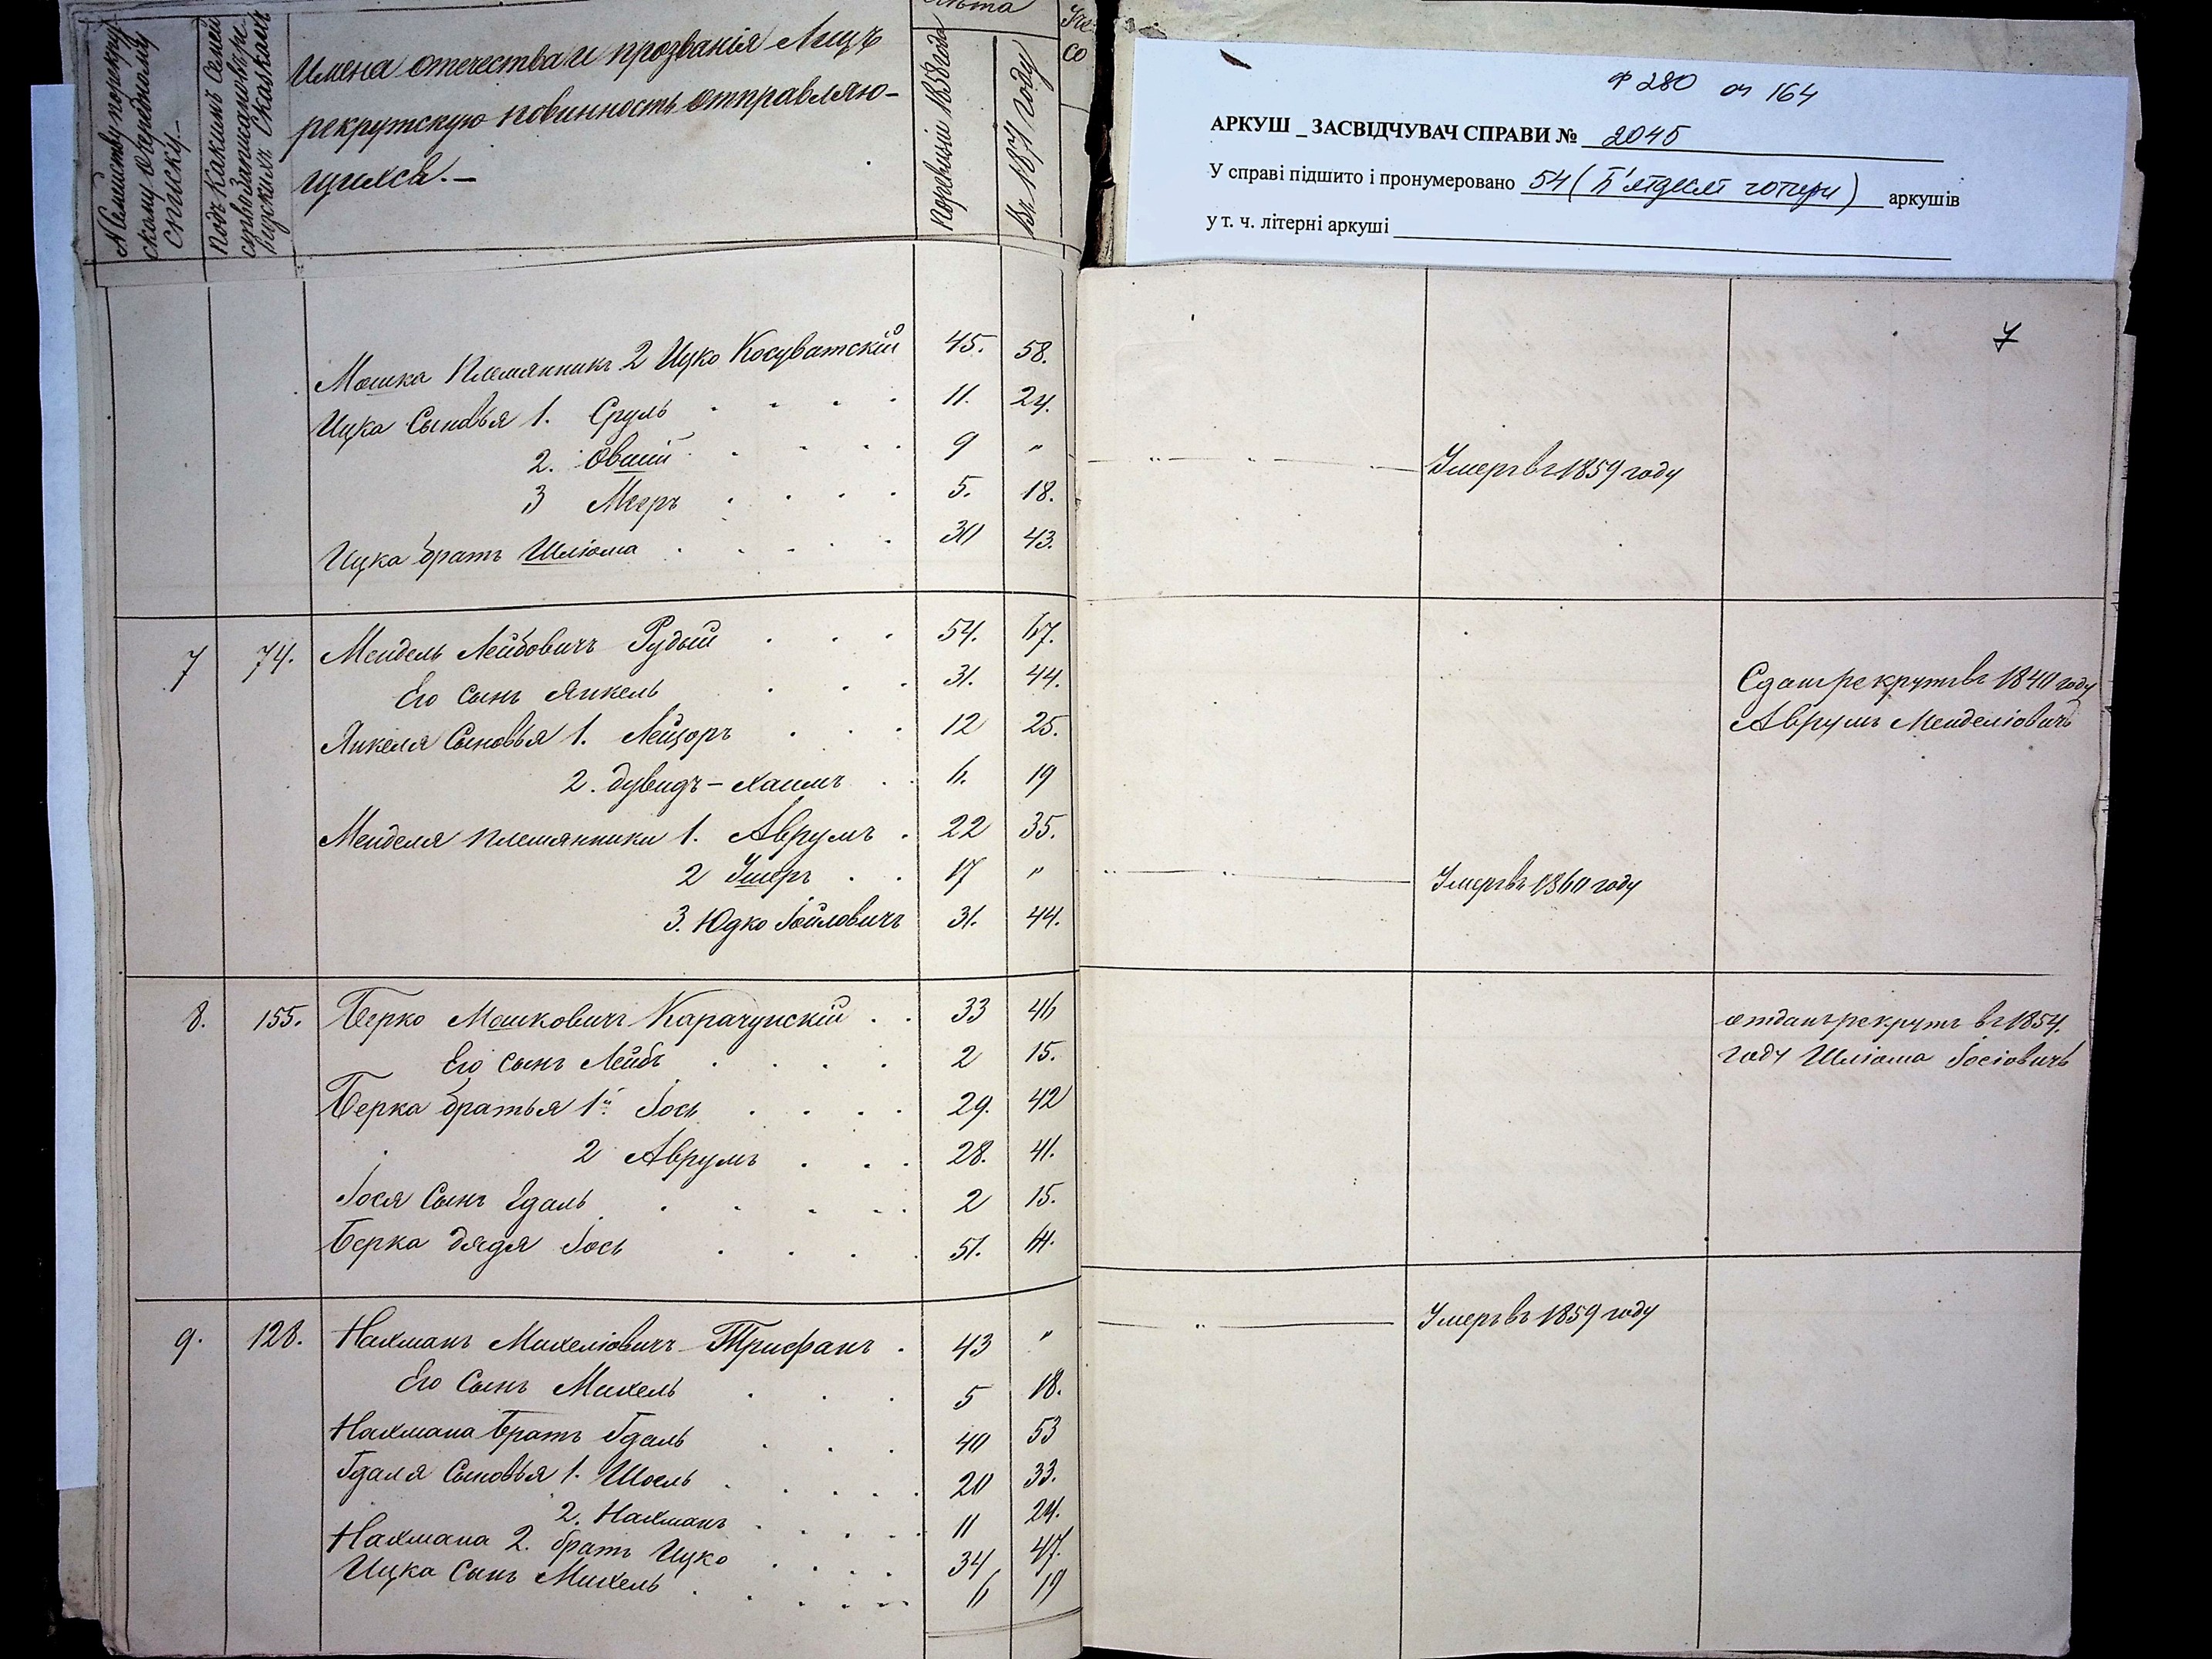 № Семейству порекрут
скому Очередному
списку.—
Подъ Какимъ Семей
ствозаписановъре
визскихъ Сказкахъ
Имена отечества и прозванія Лицъ
рекрутскую повинность отправляю-
щихся.—
Лѣта
Поревизіи 1858 года
Въ 1871 году
Ф 280 оп 164
АРКУШ _ ЗАСВІДЧУВАЧ СПРАВИ № 2045
У справі підшито і пронумеровано 54 (П'ятдесят чотири) аркушів
у т. ч. літерні аркуші
7
Мошка Племянникъ 2 Ицко Косуватскій 45. 58.
Ицка Сыновья 1. Сруль 11. 24.
2. Овшій 9 " Умеръ въ 1859 году
3 Меръ 5. 18.
Ицка братъ Шліома 30 43.
7 74. Мендель Лейбовичъ Рудый 54. 67.
Его сынъ Янкель 31. 44. Сданъ рекрутъ въ 1840 году
Янкеля Сыновья 1. Лейзоръ 12 25. Аврумъ Менделіовичъ
2. Дувидъ-Хаимъ 6. 19
Менделя племянники 1. Аврумъ 22 35.
2 Ушеръ 17 " Умеръ въ 1860 году
3. Юдко Іойловичъ 31. 44.
8. 155. Берко Мошковичъ Карачунскій 33 46 отданъ рекрутъ въ 1854.
Его сынъ Лейбъ 2 15. году Шліома Іосіовичъ
Берка братья 1й Іось 29. 42
2 Аврумъ 28. 41.
Іося Сынъ Гдаль 2 15.
Берка дядя Іось 51. 64.
9. 128. Нахманъ Михеліовичъ Трифанъ 43 " Умеръ въ 1859 году
Его Сынъ Михель 5 18.
Нахмана братъ Гдаль 40 53
Гдаля Сыновья 1. Шоель 20 33.
2. Нахманъ 11 24.
Нахмана 2. братъ Ицко 34 47.
Ицка Сынъ Михель 6 19